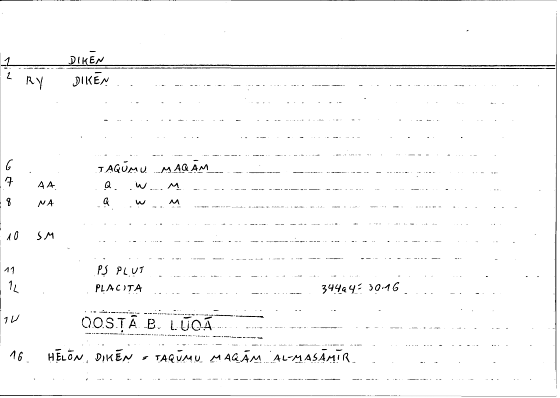 1 DIKĒN
2 RY DIKĒN
6 TAQŪMU MAQĀM
7 AA Q W M
8 NA Q W M
10 SM
11 PS PLUT
12 PLACITA 344a4 = 30.16
14 QOSṬĀ B. LŪQĀ
16 HĒLŌN DIKĒN = TAQŪMU MAQĀM AL-MASĀMĪR